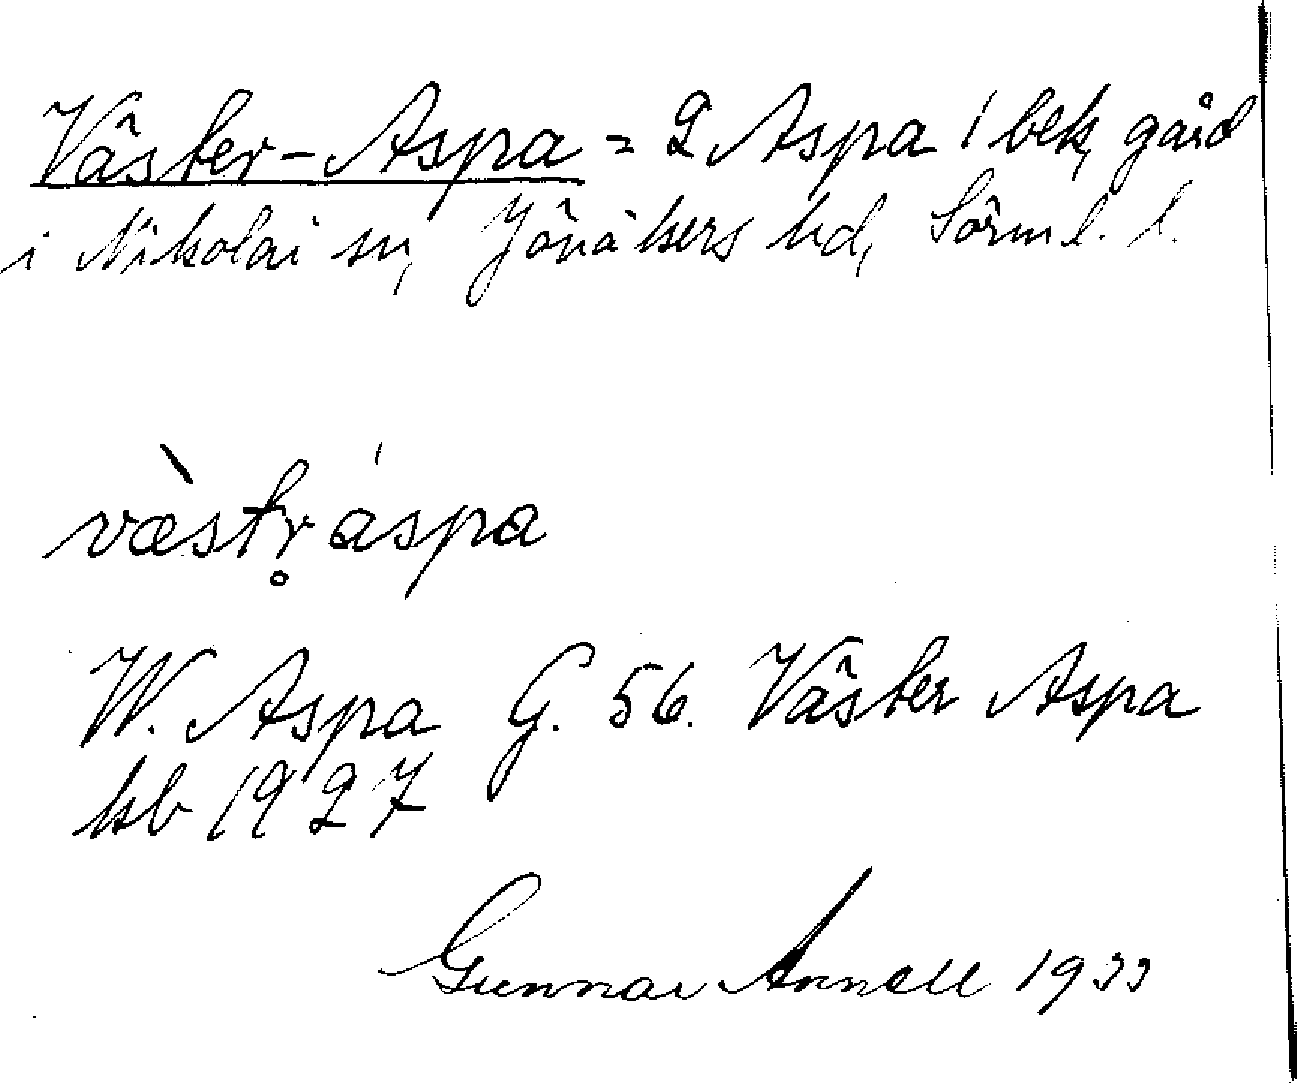 Väster-Aspa = 2 Aspa 1 bek, gård
i Nikolai sn, Jönåkers hd, Sörml. l.
væ̀str̥ áspa
W. Aspa G. 56. Väster Aspa
kb 1927
Gunnar Annell 1933